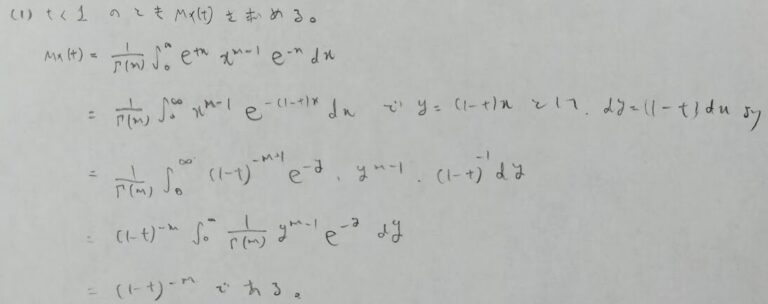 (1) t<1 のとき Mx(t) を求める。
Mx(t) = 1/Γ(m) ∫₀^∞ e^{tx} x^{m-1} e^{-x} dx
= 1/Γ(m) ∫₀^∞ x^{m-1} e^{-(1-t)x} dx で y = (1-t)x として、dy = (1-t) dx より
= 1/Γ(m) ∫₀^∞ (1-t)^{-m+1} e^{-y} . y^{m-1} . (1-t)^{-1} dy
= (1-t)^{-m} ∫₀^∞ 1/Γ(m) y^{m-1} e^{-y} dy
= (1-t)^{-m} である。